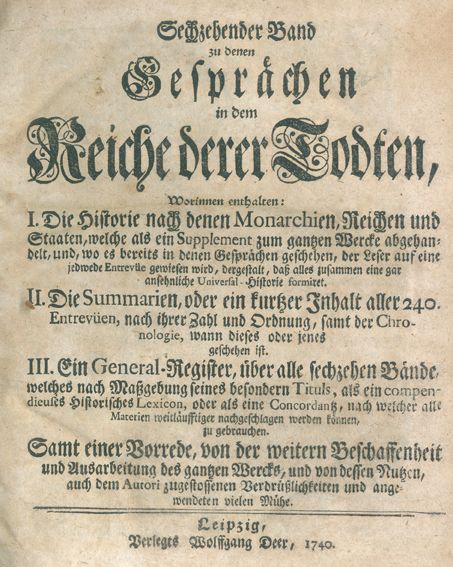 Sechzehender Band
zu denen
Gesprächen
in dem
Reiche derer Todten,
Worinnen enthalten:
I. Die Historie nach denen Monarchien, Reichen und
Staaten, welche als ein Supplement zum gantzen Wercke abgehan-
delt, und, wo es bereits in denen Gesprächen geschehen, der Leser auf eine
jedwede Entrevüe gewiesen wird, dergestalt, daß alles zusammen eine gar
ansehnliche Universal-Historie formiret.
II. Die Summarien, oder ein kurtzer Inhalt aller 240.
Entrevüen, nach ihrer Zahl und Ordnung, samt der Chro-
nologie, wann dieses oder jenes
geschehen ist.
III. Ein General-Register, über alle sechzehen Bände,
welches nach Maßgebung seines besondern Tituls, als ein compen-
dieuses Historisches Lexicon, oder als eine Concordantz, nach welcher alle
Materien weitläufftiger nachgeschlagen werden können,
zu gebrauchen.
Samt einer Vorrede, von der weitern Beschaffenheit
und Ausarbeitung des gantzen Wercks, und von dessen Nutzen,
auch dem Autori zugestossenen Verdrüßlichkeiten und ange-
wendeten vielen Mühe.
Leipzig,
Verlegts Wolffgang Deer, 1740.